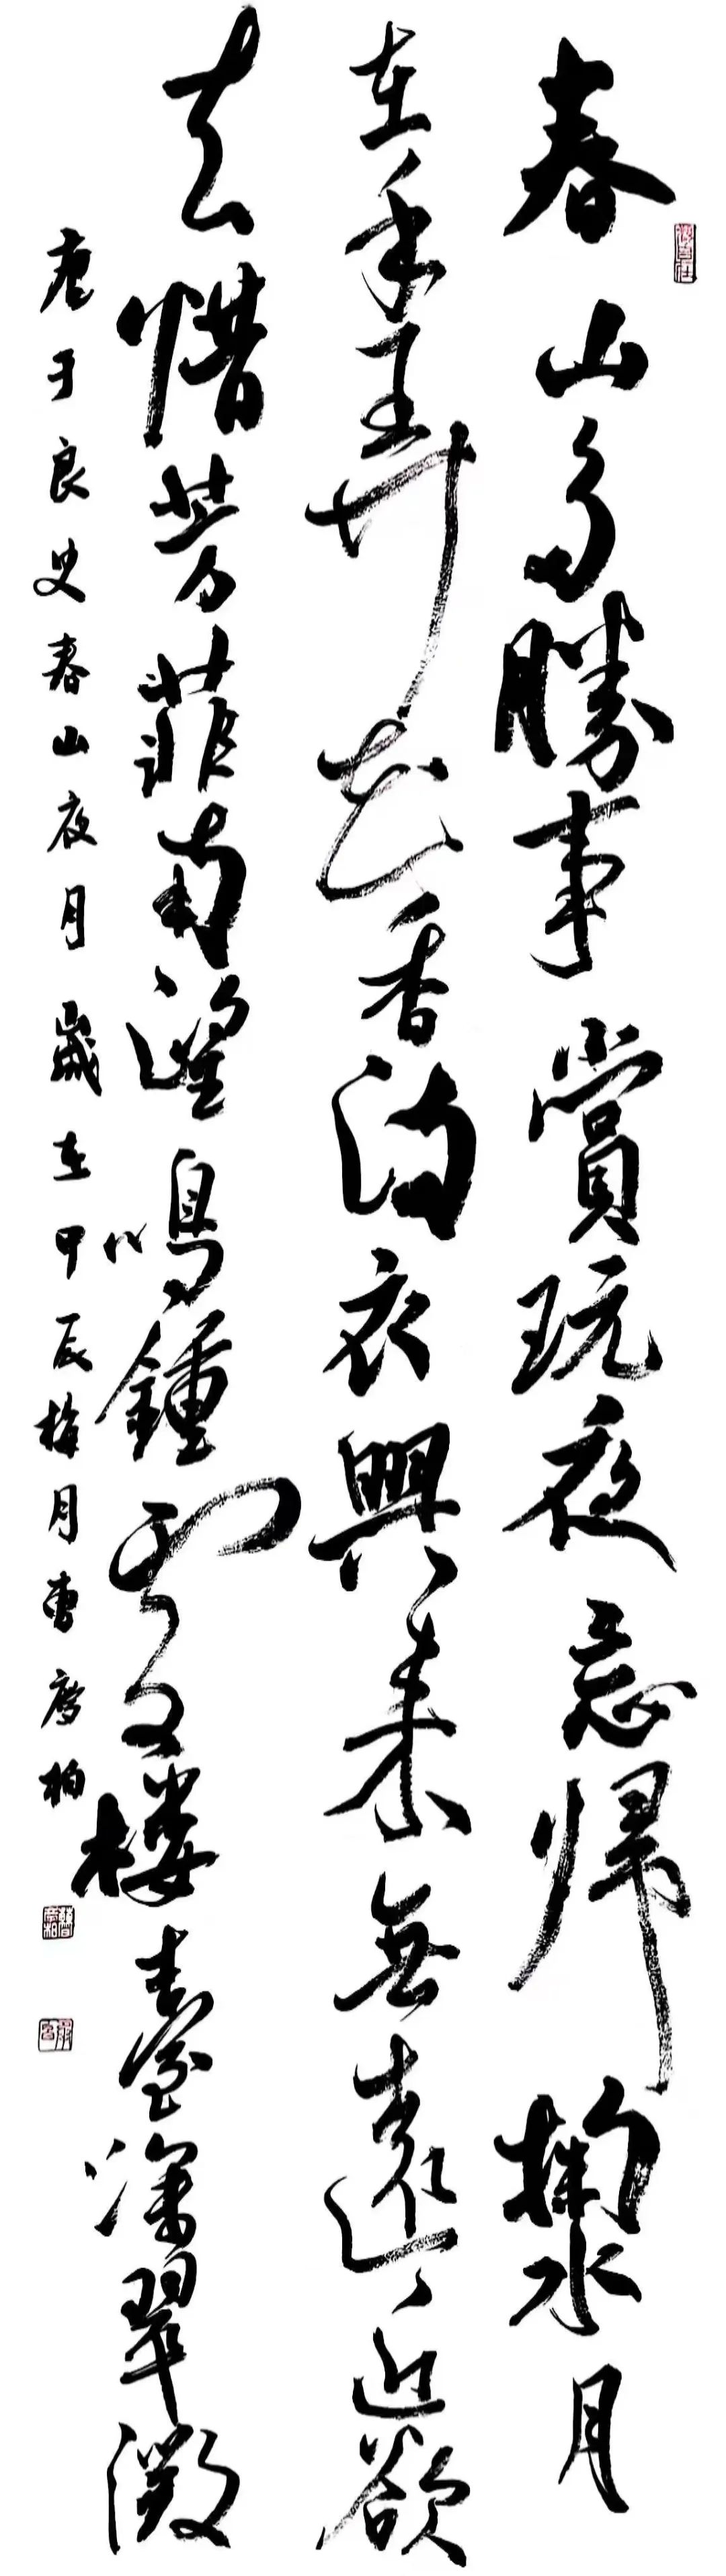 春山多勝事賞玩夜忘歸掬水月
在手弄花香滿衣興來無遠近欲
去惜芳菲南望鳴鍾處樓臺深翠微
唐于良史春山夜月歲在甲辰梅月曹柏